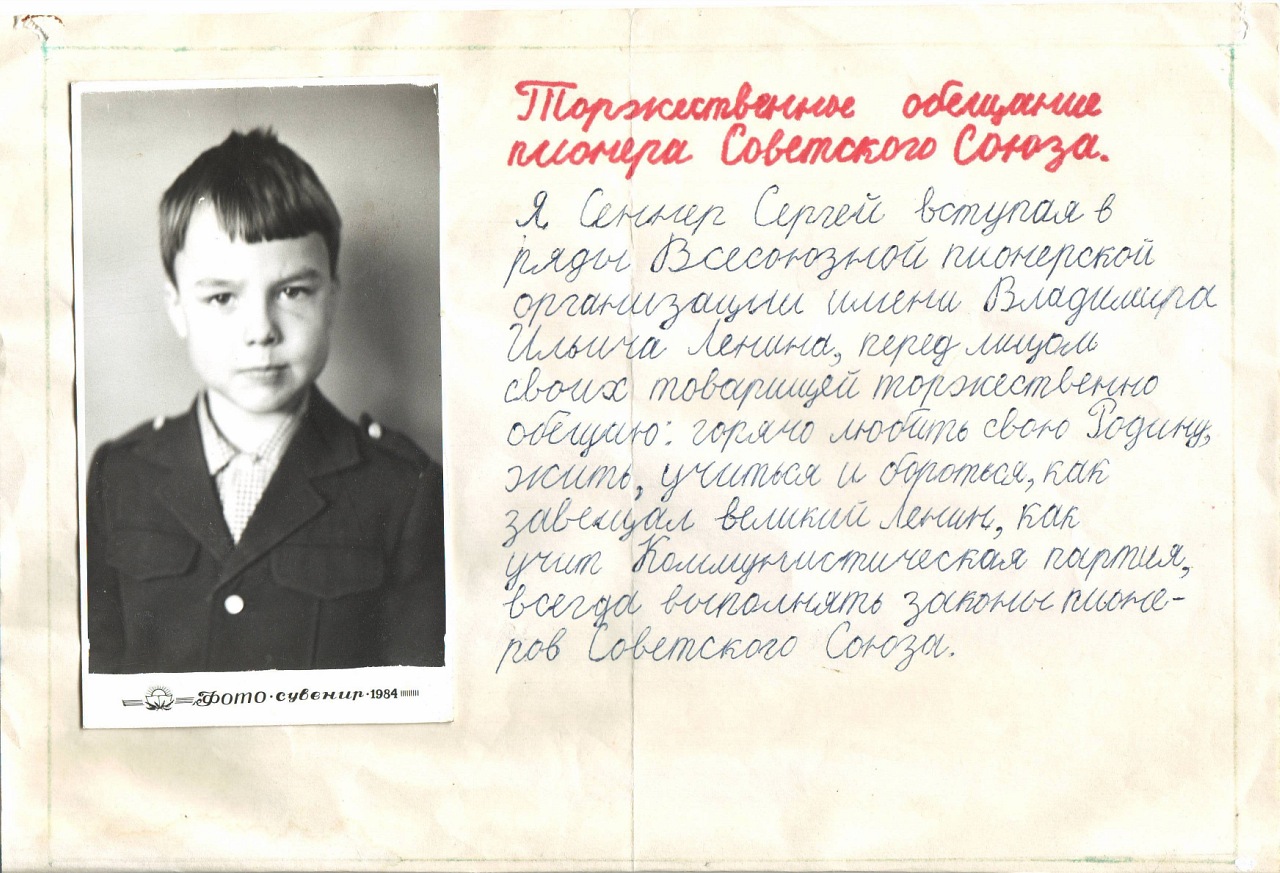 Торжественное обещание
пионера Советского Союза.
Я, Сеннер Сергей вступая в
ряды Всесоюзной пионерской
организации имени Владимира
Ильича Ленина, перед лицом
своих товарищей торжественно
обещаю: горячо любить свою Родину,
жить, учиться и бороться, как
завещал великий Ленин, как
учит Коммунистическая партия,
всегда выполнять законы пионе-
ров Советского Союза.
Фото·сувенир·1984